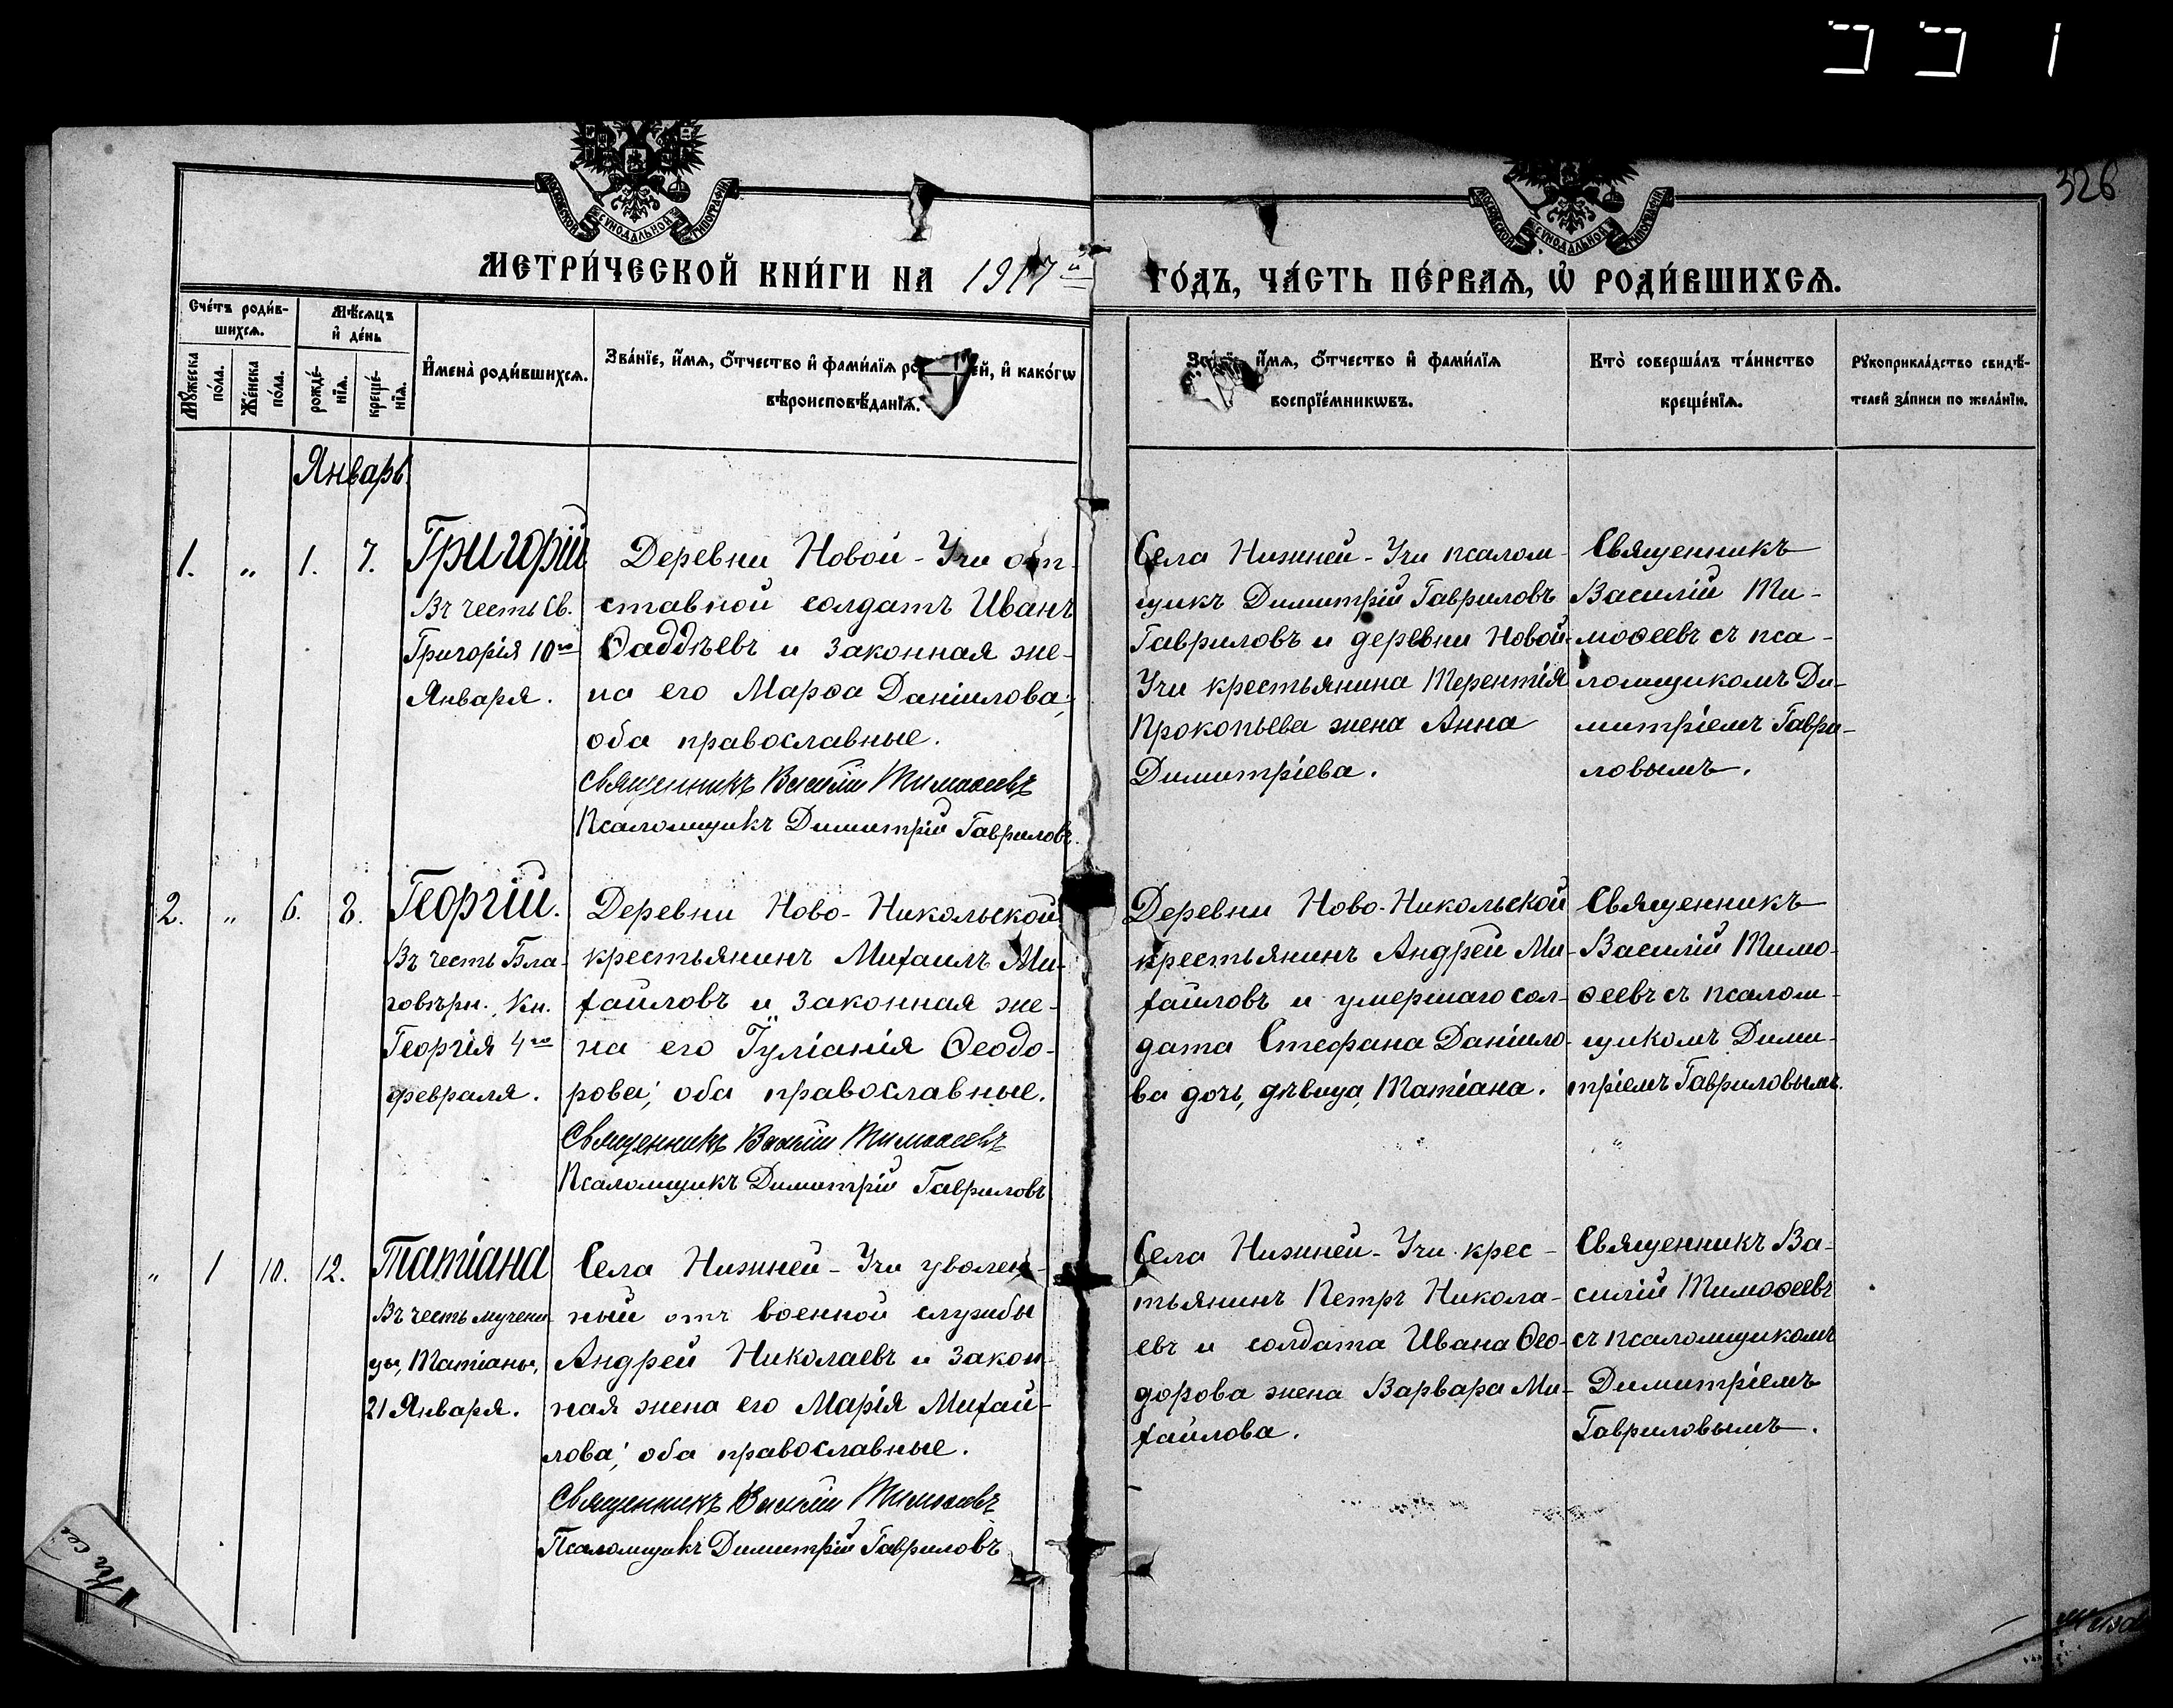 326
МОСКОВСКОЙ СѴНОДАЛЬНОЙ ТИПОГРАФІИ
МОСКОВСКОЙ СѴНОДАЛЬНОЙ ТИПОГРАФІИ
МЕТРИ́ЧЕСКОЙ КНИ́ГИ НА 1917й
ГО́ДЪ, ЧА́СТЬ ПЕ́РВАѦ, Ѡ҆ РОДИ́ВШИХСѦ.
Сче́тъ роди́в-
шихсѧ.
Мѣ́сѧцъ
и҆ де́нь
Мꙋ́жеска
по́ла.
Же́нска
по́ла.
рожде́-
нїѧ.
креще́-
нїѧ.
И҆мена̀ роди́вшихсѧ.
Зва́нїе, и҆́мѧ, ѻ҆́тчество и҆ фами́лїѧ ро ей, и҆ како́гѡ
вѣроисповѣ́данїѧ.
и҆́мѧ, ѻ҆́тчество и҆ фами́лїѧ
воспрїе́мникѡвъ.
Кто̀ соверша́лъ та́инство
креще́нїѧ.
Рꙋкоприкла́дство свидѣ́-
телей за́писи по жела́нїю.
Январь
1. „ 1. 7. Григорій
Въ честь Св.
Григорія 10го
Января.
Деревни Новой-Учи от-
ставной солдатъ Иванъ
Ѳаддѣевъ и законная же-
на его Марѳа Даніилова;
оба православные.
Священникъ Василій Тимоѳеевъ
Псаломщикъ Димитрій Гавриловъ.
Села Нижней-Учи псалом-
щикъ Димитрій Гавриловъ
Гавриловъ и деревни Новой-
Учи крестьянина Терентія
Прокопьева жена Анна
Димитріева.
Священникъ
Василій Ти-
моѳеевъ съ пса-
ломщикомъ Ди-
митріемъ Гаври-
ловымъ.
2. „ 6. 8. Георгій.
Въ честь Бла-
говѣрн. Кн.
Георгія 4го
февраля.
Деревни Ново-Никольской
крестьянинъ Михаилъ Ми-
хайловъ и законная же-
на его Іуліанія Ѳеодо-
рова; оба православные.
Священникъ Василій Тимоѳеевъ
Псаломщикъ Димитрій Гавриловъ
Деревни Ново-Никольской
крестьянинъ Андрей Ми-
хайловъ и умершаго сол-
дата Стефана Даніило-
ва дочь, дѣвица, Татіана.
Священникъ
Василій Тимо-
ѳеевъ съ псалом-
щикомъ Дими-
тріемъ Гавриловымъ.
„ 1 10. 12. Татіана
Въ честь мучени-
цы, Татіаны,
21 Января.
Села Нижней-Учи уволен-
ный отъ военной службы
Андрей Николаевъ и закон-
ная жена его Марія Михай-
лова; оба православные.
Священникъ Василій Тимоѳеевъ
Псаломщикъ Димитрій Гавриловъ
Села Нижней-Учи крес-
тьянинъ Петръ Никола-
евъ и солдата Ивана Ѳео-
дорова жена Варвара Ми-
хайлова.
Священникъ Ва-
силій Тимоѳеевъ
съ псаломщикомъ
Димитріемъ
Гавриловымъ.